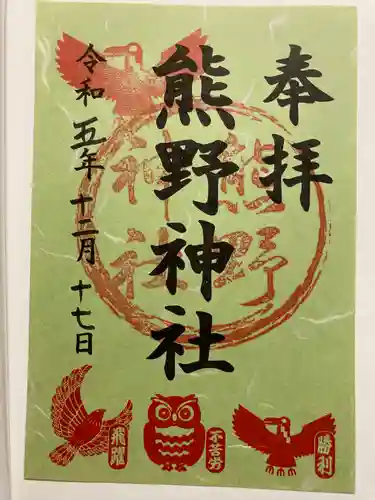 奉拝
熊野神社
令和五年十二月十七日
熊野
神社
飛躍
不苦労
勝利